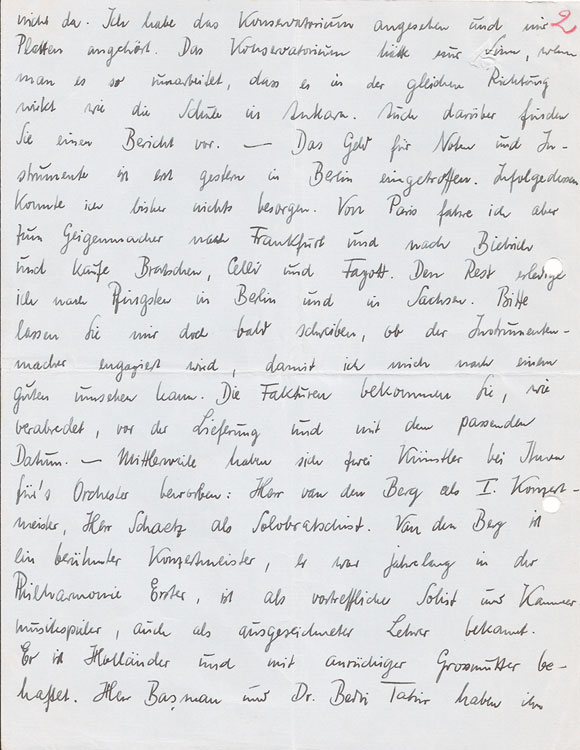 2
nicht da. Ich habe das Konservatorium angesehen und mir
Platten angehört. Das Konservatorium hätte nur Sinn, wenn
man es so umarbeitet, dass es in der gleichen Richtung
wirkt wie die Schule in Ankara. Auch darüber finden
Sie einen Bericht vor. — Das Geld für Noten und In-
strumente ist erst gestern in Berlin eingetroffen. Infolgedessen
konnte ich bisher nichts besorgen. Von Paris fahre ich aber
zum Geigenmacher nach Frankfurt und nach Biebrich
und kaufe Bratschen, Celli und Fagott. Den Rest erledige
ich nach Pfingsten in Berlin und in Sachsen. Bitte
lassen Sie mir doch bald schreiben, ob der Instrumenten-
macher engagiert wird, damit ich mich nach einem
guten umsehen kann. Die Fakturen bekommen Sie, wie
verabredet, vor der Lieferung und mit dem passenden
Datum. — Mittlerweile haben sich zwei Künstler bei Ihnen
für's Orchester beworben: Herr van den Berg als I. Konzert-
meister, Herr Schaetz als Solobratschist. Van den Berg ist
ein berühmter Konzertmeister, er war jahrelang in der
Philharmonie Erster, ist als vortrefflicher Solist und Kammer
musikspieler, auch als ausgezeichneter Lehrer bekannt.
Er ist Holländer und mit anrüchiger Grossmutter be-
haftet. Herr Başman und Dr. Bedri Tahir haben ihn